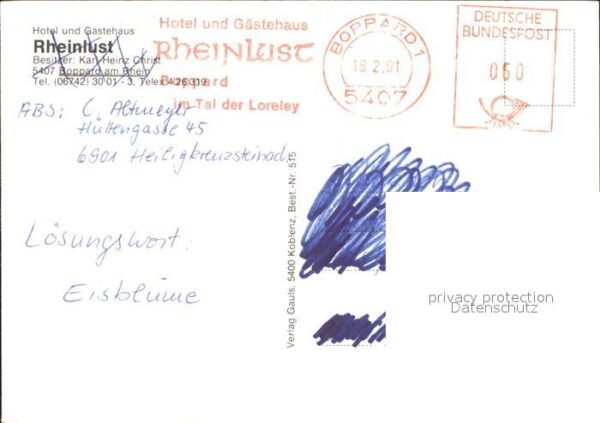 Hotel und Gästehaus
Rheinlust
Besitzer: Karl-Heinz Christ
5407 Boppard am Rhein
Tel. (06742) 30 01 - 3, Telex 4 26 319
Hotel und Gästehaus
Rheinlust
Boppard
im Tal der Loreley
BOPPARD 1
18.2.91
5407
DEUTSCHE
BUNDESPOST
060
ABS: C. Altmeyer
Hüttengasse 45
6901 Heiligkreuzsteinach
Lösungswort:
Eisblume
Verlag Gauls, 5400 Koblenz, Best.-Nr. 515
privacy protection
Datenschutz